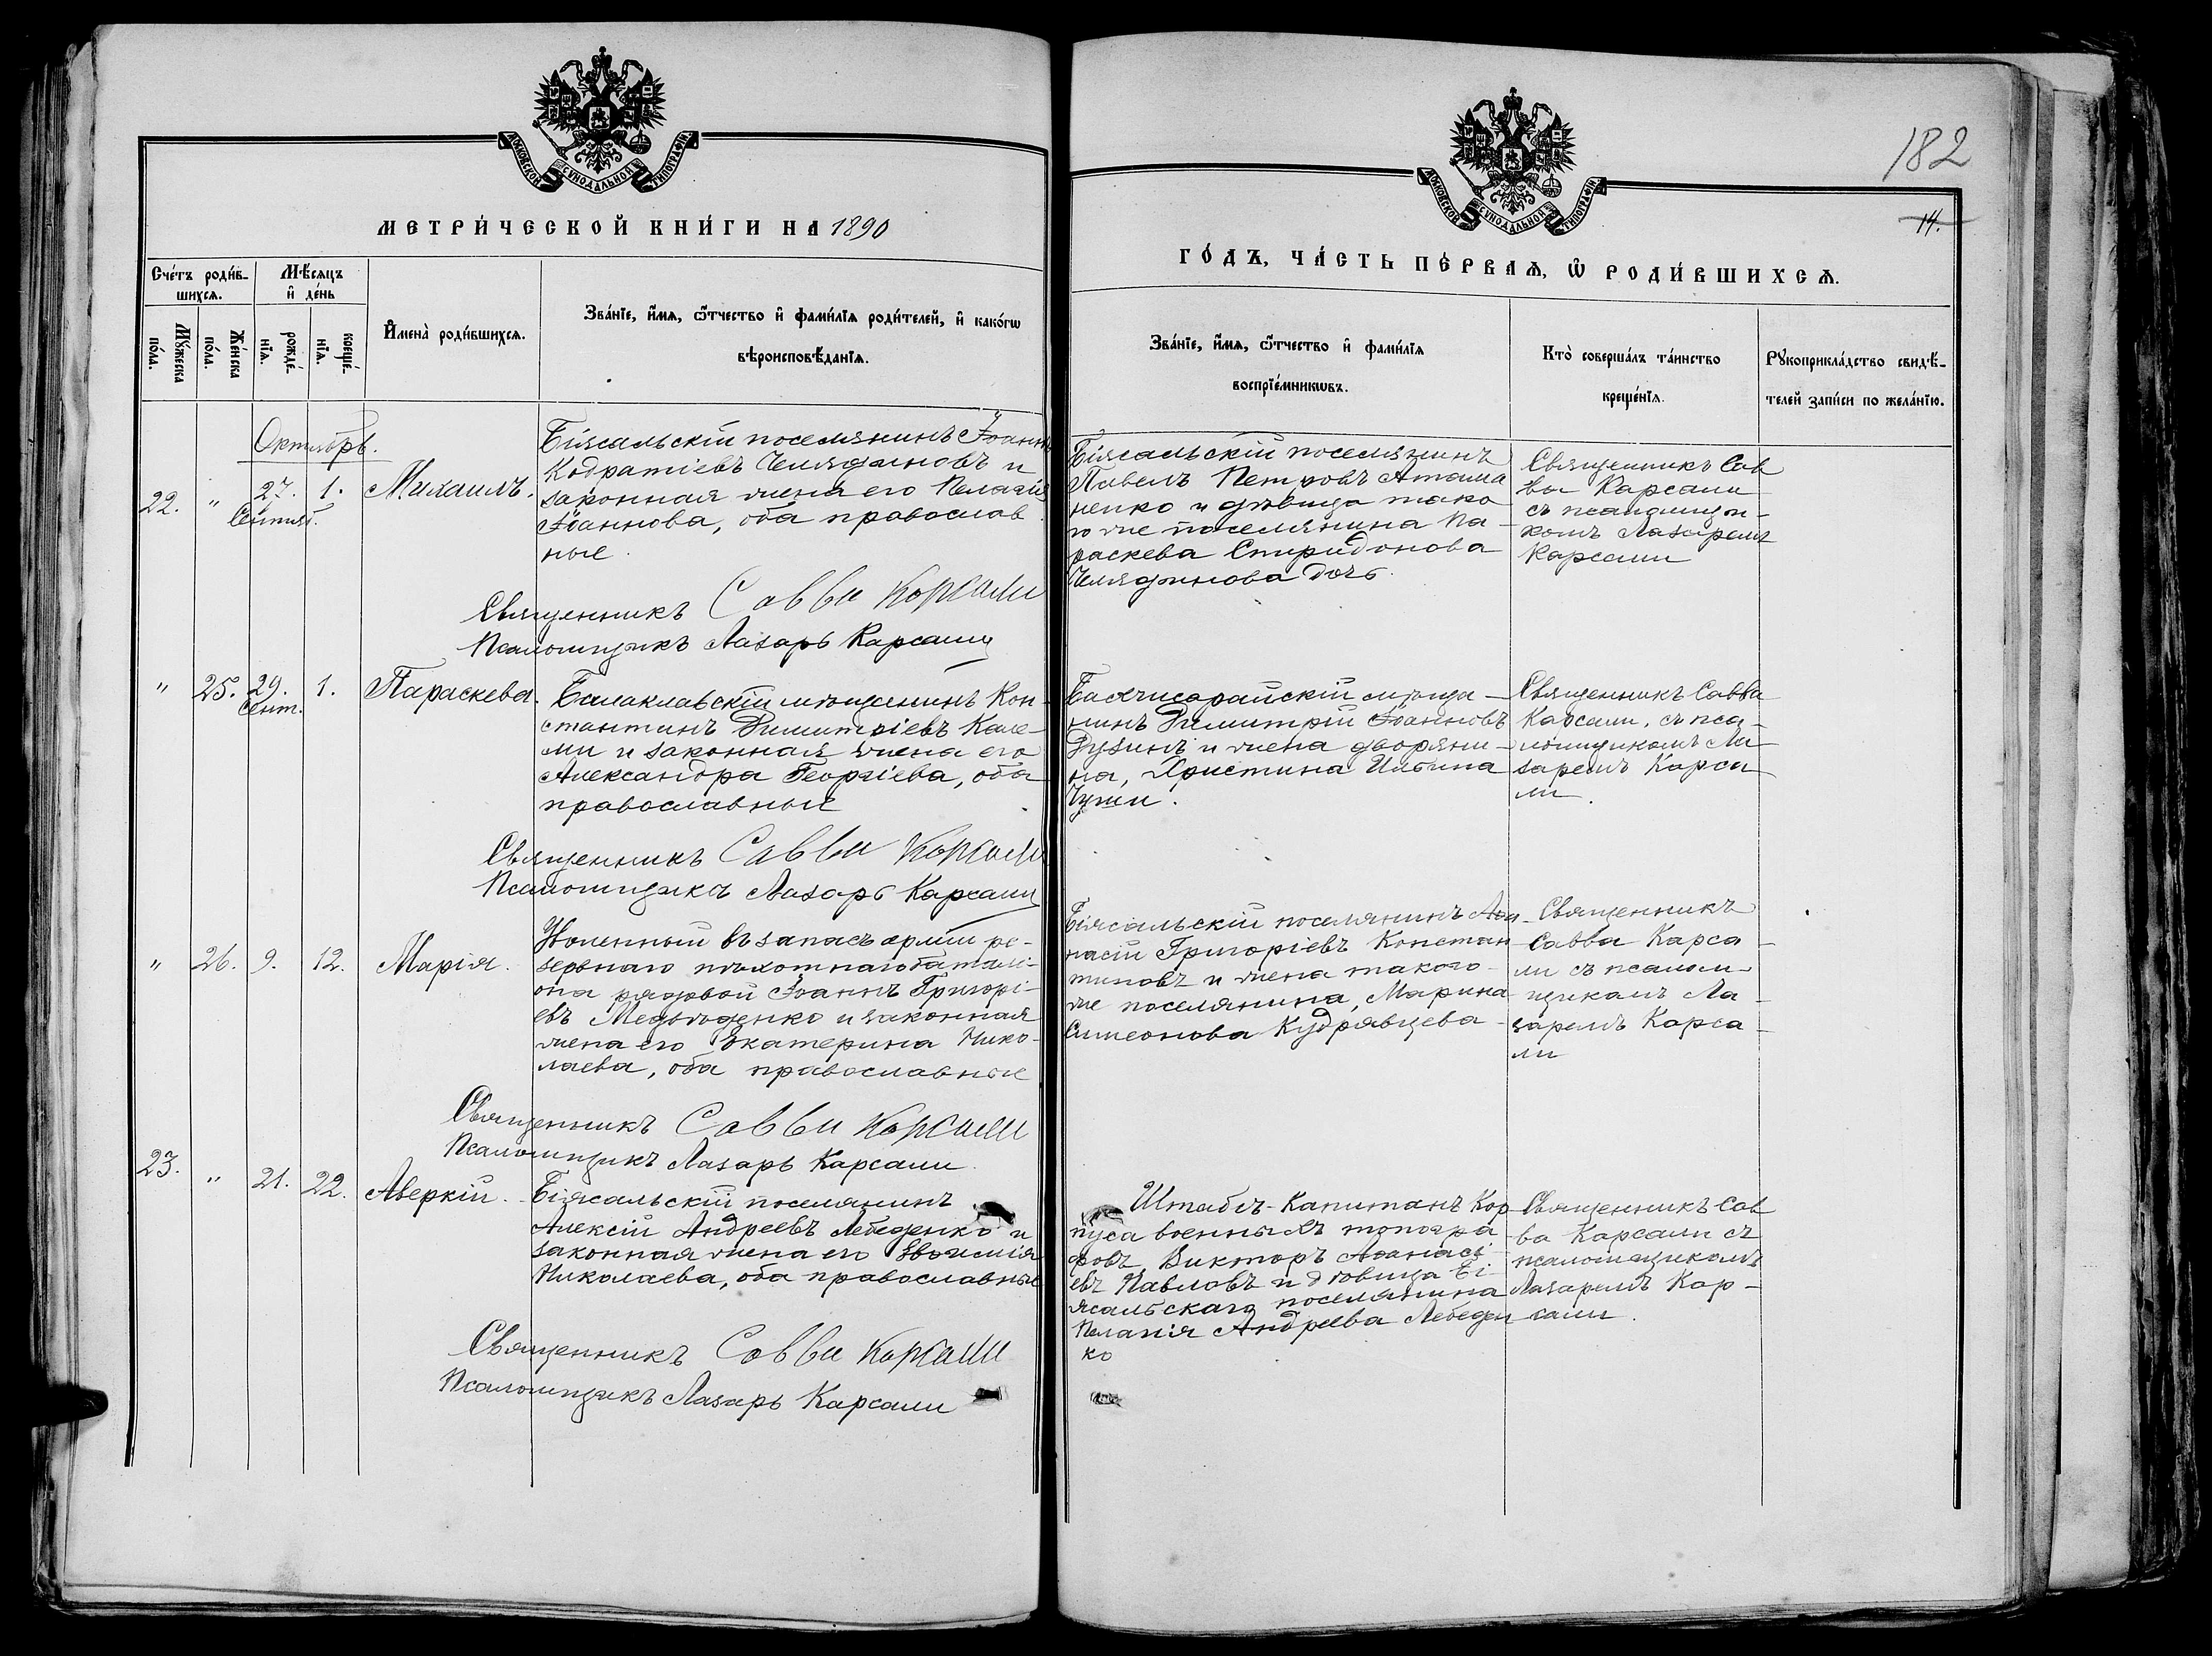 МОСКОВСКОЙ СѴНОДАЛЬНОЙ ТИПОГРАФІИ
МЕТРИ́ЧЕСКОЙ КНИ́ГИ НА 1890
Сче́тъ роди́в-
шихсѧ.
Мѣ́сѧцъ
и҆ де́нь
Мꙋ́жеска
по́ла.
Же́нска
по́ла.
рожде́-
нїѧ.
креще́-
нїѧ.
И҆мена̀ роди́вшихсѧ.
Зва́нїе, и҆́мѧ, ѻ҆́тчество и҆ фами́лїѧ роди́телей, и҆ како́гѡ
вѣроисповѣ́данїѧ.
Октябрь.
22.
"
27.
Сентяб.
1.
Михаилъ.
Біясальскій поселянинъ Іоаннъ
Кодратіевъ Челядиновъ и
законная жена его Пелагія
Іоаннова, оба православ
ные.
Священникъ Савва Карсали
Псаломщикъ Лазарь Карсали
"
25.
29.
Сент.
1.
Параскева.
Балаклавскій мѣщанинъ Кон-
стантинъ Димитріевъ
ми и законная жена его
Александра Георгіева, оба
православные
Священникъ Савва Карсали
Псаломщикъ Лазарь Карсали
"
26.
9.
12.
Марія.
Уволенный въ запасъ арміи ре-
зервнаго пѣхотнаго баталі-
она рядовой Іоаннъ Григорі-
евъ и законная
жена его Екатерина Нико-
лаева, оба православные
Священникъ Савва Карсали
Псаломщикъ Лазарь Карсали
23.
"
21.
22.
Аверкій.
Біясальскій поселянинъ
Алексій Андреевъ Лебеденко и
законная жена его Евѳимія
Николаева, оба православные
Священникъ Савва Карсали
Псаломщикъ Лазарь Карсали
182
МОСКОВСКОЙ СѴНОДАЛЬНОЙ ТИПОГРАФІИ
14.
ГО́ДЪ, ЧА́СТЬ ПЕ́РВАѦ, Ѽ РОДИ́ВШИХСѦ.
Зва́нїе, и҆́мѧ, ѻ҆́тчество и҆ фами́лїѧ
воспрїе́мникѡвъ.
Кто̀ соверша́лъ та́инство
креще́нїѧ.
Рꙋкоприкла́дство свидѣ́-
телей за́писи по жела́нїю.
Біясальскій поселянинъ
Павелъ Петровъ Атама
ненко и дѣвица тако
го же поселянина Па-
раскева Спиридонова
Челядинова дочь.
Священникъ Сав
ва Карсали
съ псаломщи-
комъ Лазаремъ
Карсали
Бахчисарайскій мѣща-
нинъ Димитрій Іоанновъ
и жена дворяни-
на, Христина Ильина
Священникъ Савва
Карсали, съ пса-
ломщикомъ Ла
заремъ Карса
ли.
Біясальскій поселянинъ Аѳа-
насій Григоріевъ Констан-
тиновъ и жена такого-
же поселянина, Марина
Симеонова Кудрявцева
Священникъ
Савва Карса-
ли съ псалом-
щикомъ Ла-
заремъ Карса-
ли
Штабсъ-Капитанъ Кор
пуса военныхъ топогра
фовъ Викторъ Аѳанасі-
евъ Павловъ и дѣвица Бі-
ясальскаго поселянина
Пелагія Андреева Лебеден
ко
Священникъ Сав
ва Карсали съ
псаломщикомъ
Лазаремъ Кар-
сали.